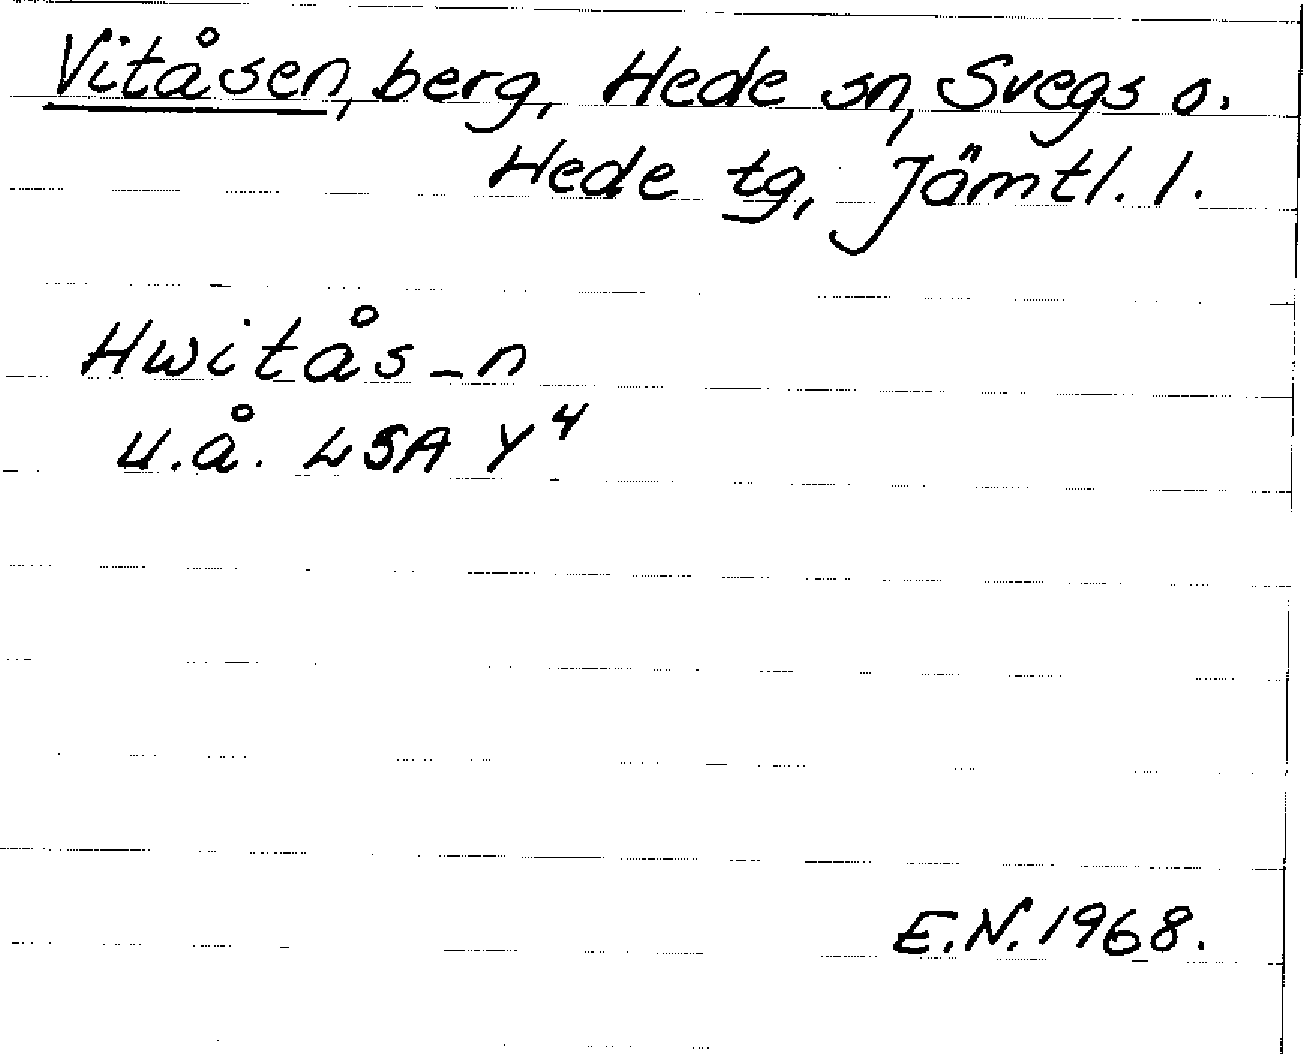 Vitåsen, berg, Hede sn, Svegs o.
Hede tg, Jämtl. l.
Hwitås-n
u.å. LSA Y4
E.N. 1968.